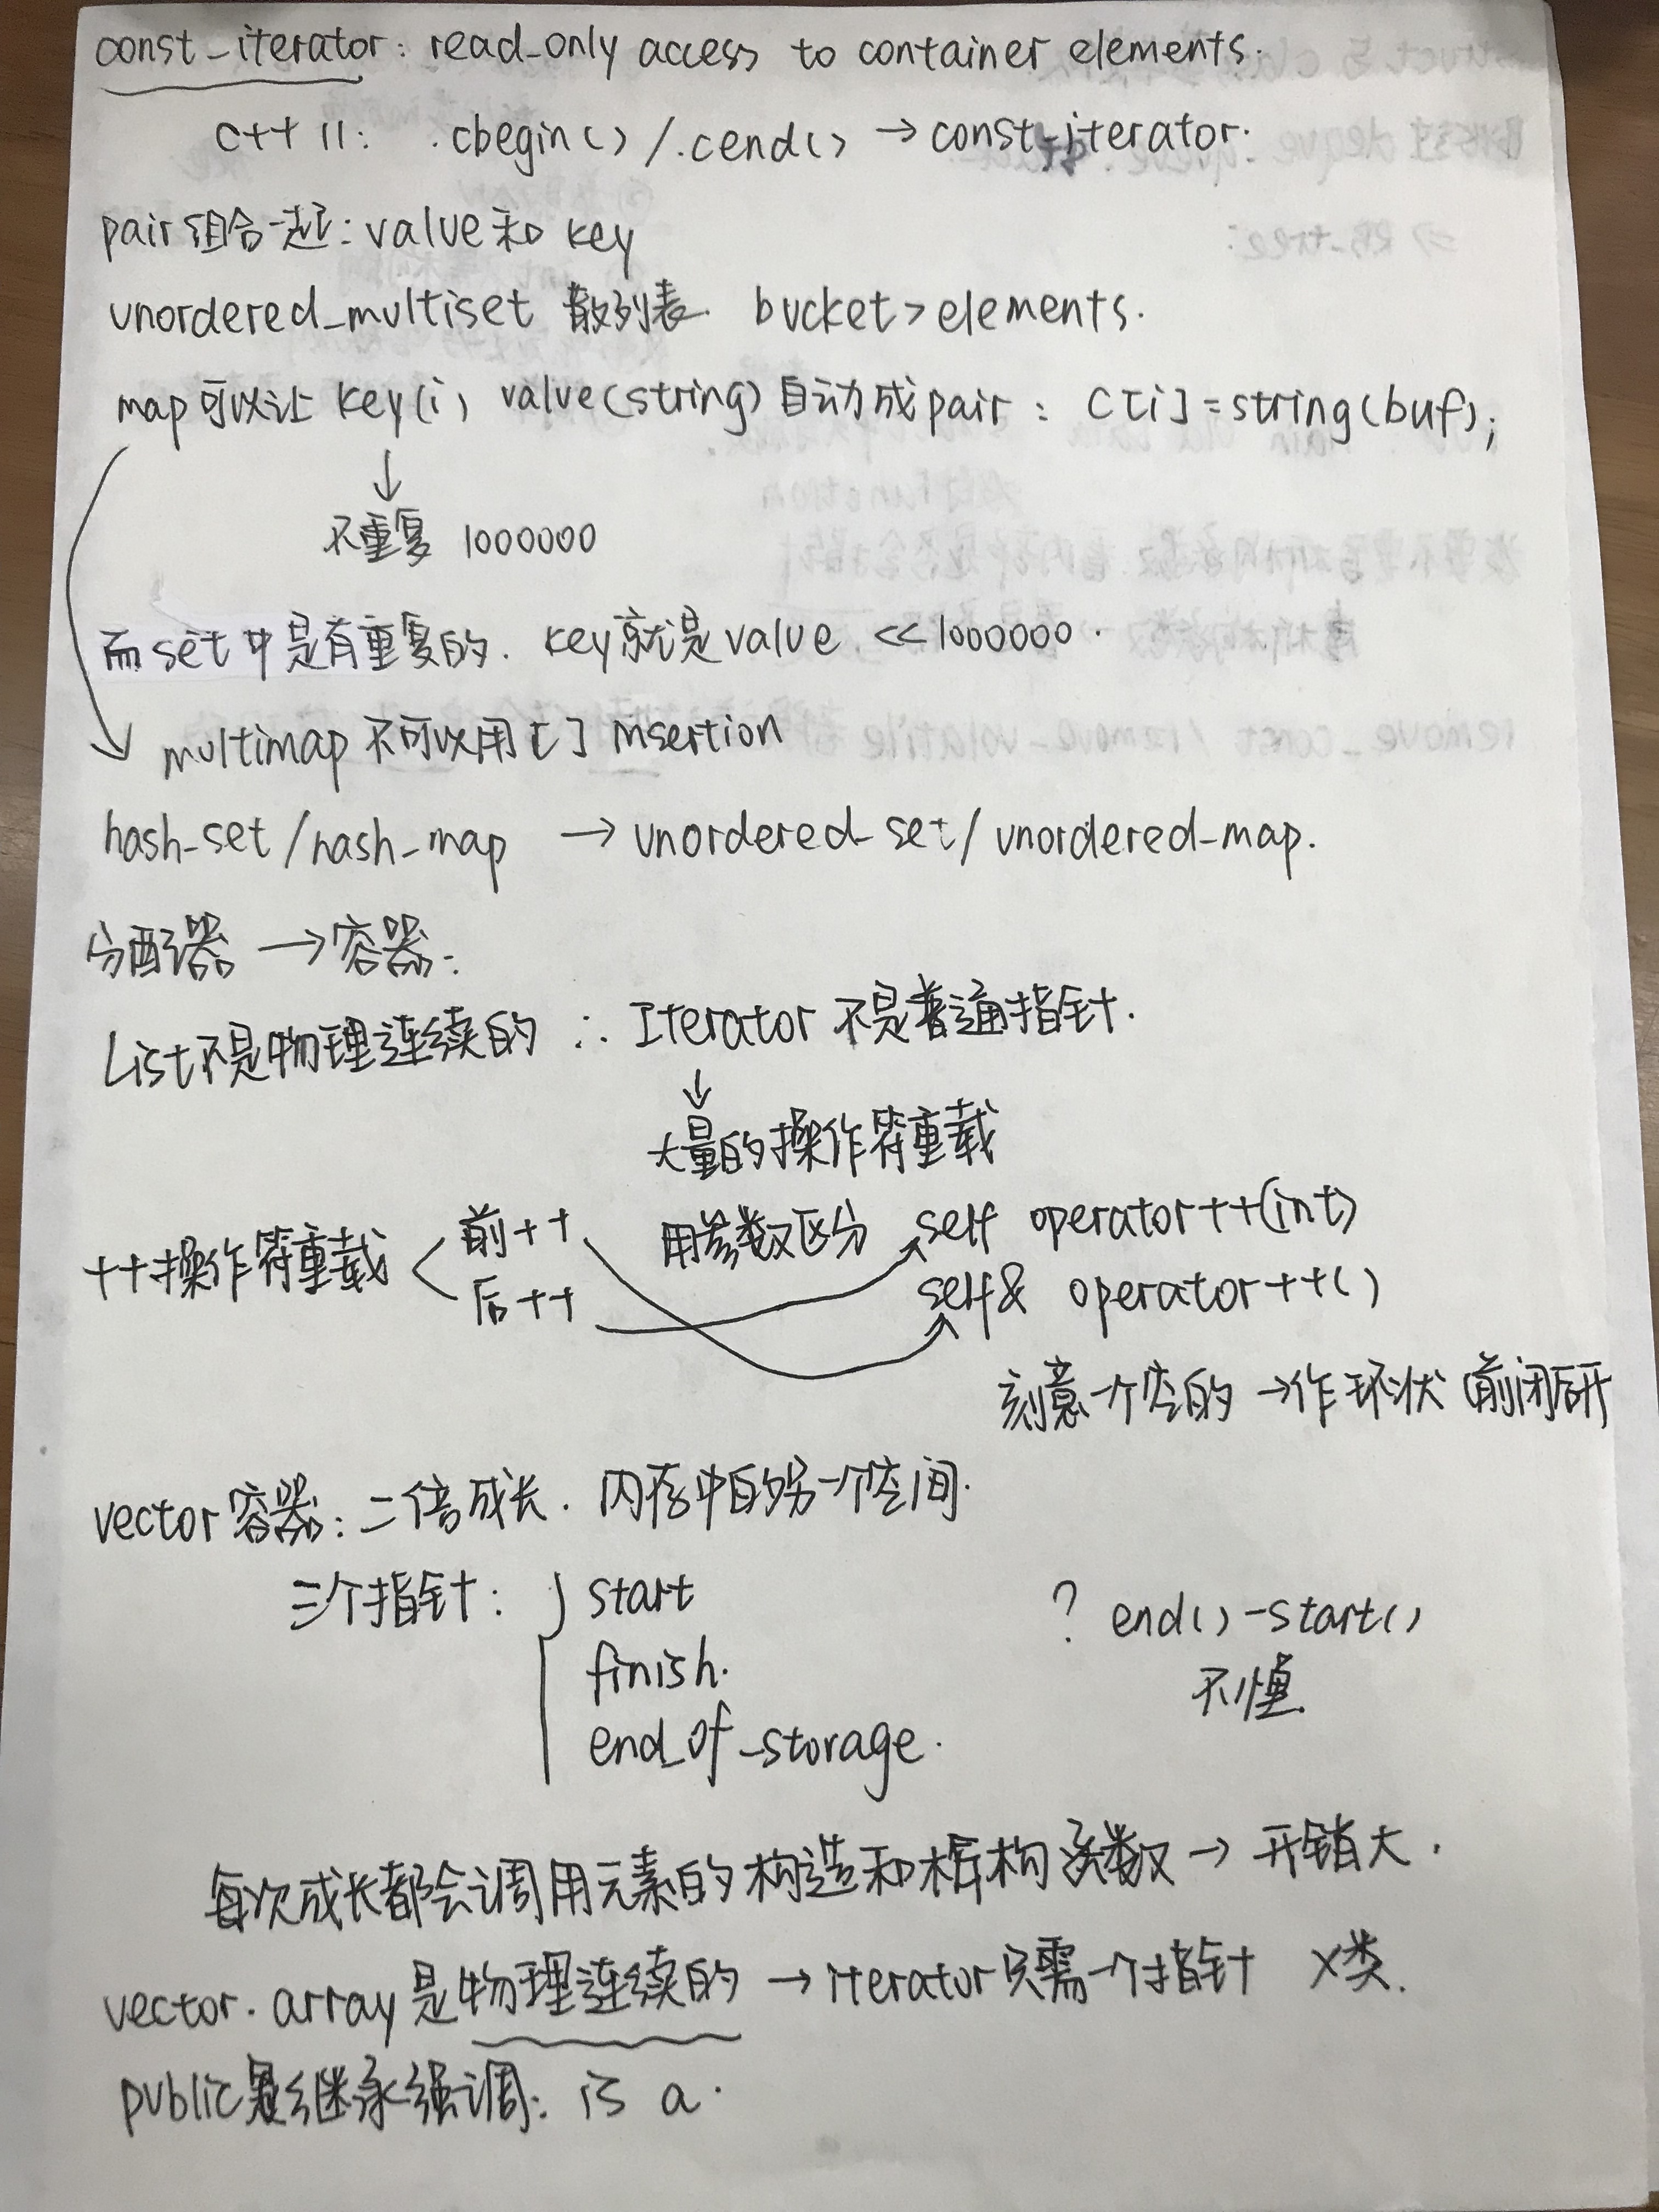 const_iterator: read_only access to container elements.
c++ 11: .cbegin() /.cend() → const_iterator.
pair组合一起: value和 key
unordered_multiset 散列表. bucket>elements.
map可以让 key(i) value(string)自动成pair: c[i]=string(buf);
↓
不重复 1000000
而set中是有重复的. key就是value <<1000000.
multimap 不可以用[] insertion
hash_set/hash_map → unordered_set/unordered_map.
分配器 → 容器.
List不是物理连续的 ∴ Iterator 不是普通指针.
↓
大量的操作符重载
++操作符重载 < 前++ 用参数区分 self operator++(int)
后++ self& operator++()
刻意一个空的 →作环状 (前闭后开
vector容器: 二倍成长. 内存中的另一个空间.
三个指针: { start ? end()-start()
finish. 不懂.
end_of_storage.
每次成长都会调用元素的构造和析构函数→ 开销大.
vector. array是物理连续的 → iterator只需一个指针 X类.
public继承强调: is a.